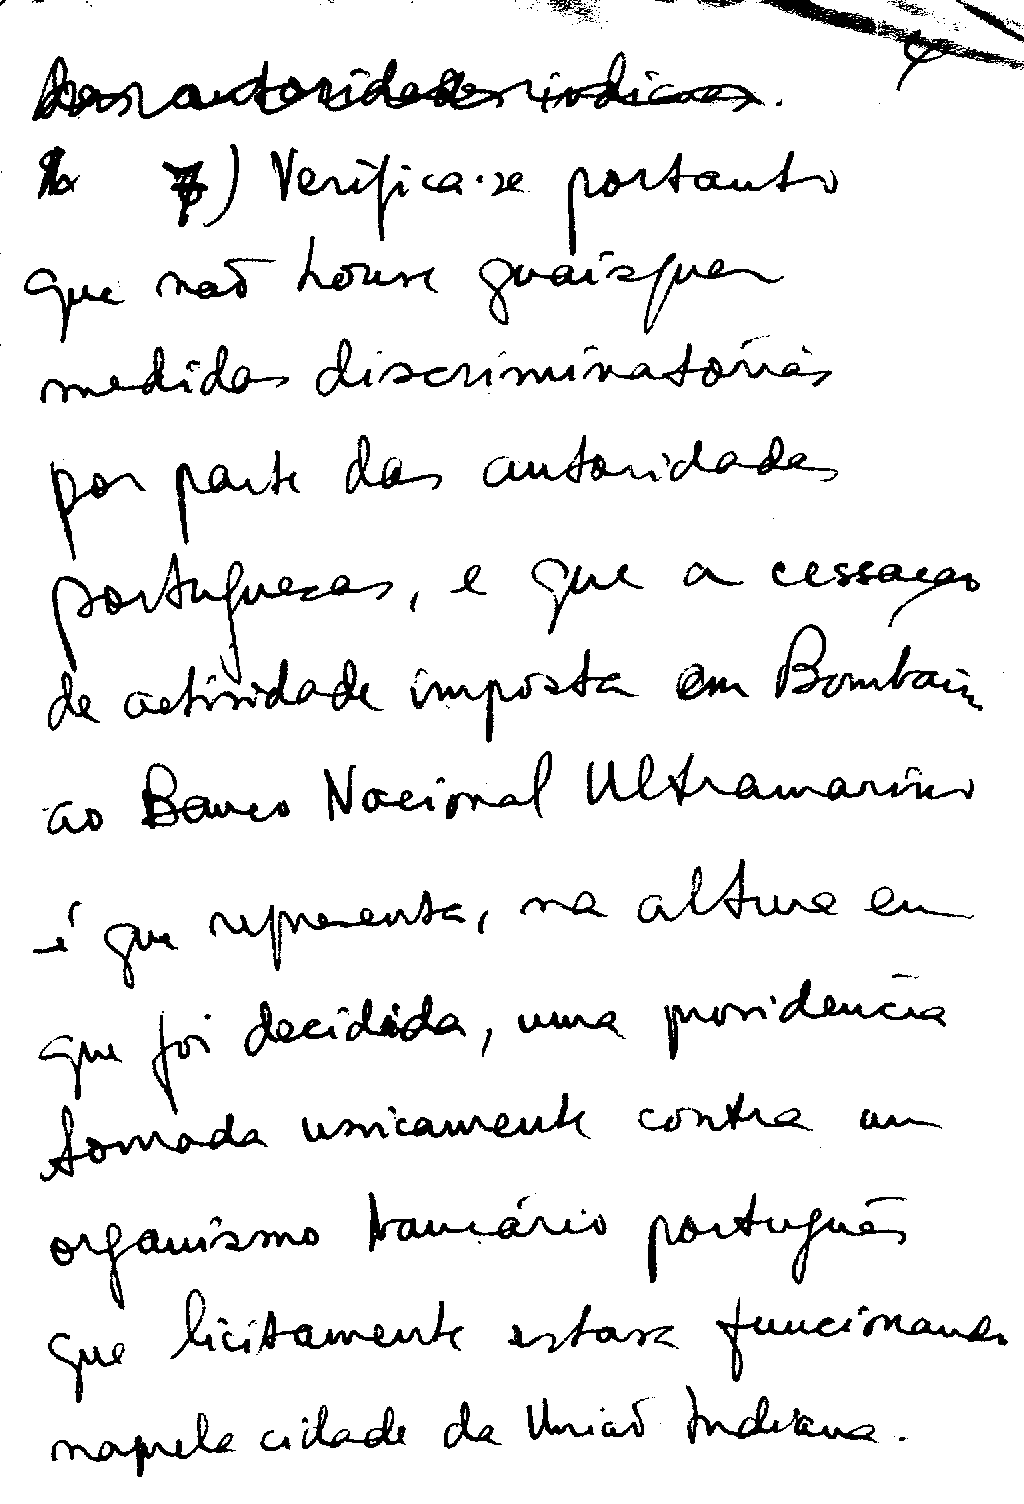 das autoridades indianas.
7) Verifica-se portanto
que não houve quaisquer
medidas discriminatórias
por parte das autoridades
portuguesas, e que a cessação
de actividade imposta em Bombaim
ao Banco Nacional Ultramarino
é que representa, na altura em
que foi decidida, uma providência
tomada unicamente contra um
organismo bancário português
que licitamente estava funcionando
naquela cidade da União Indiana.